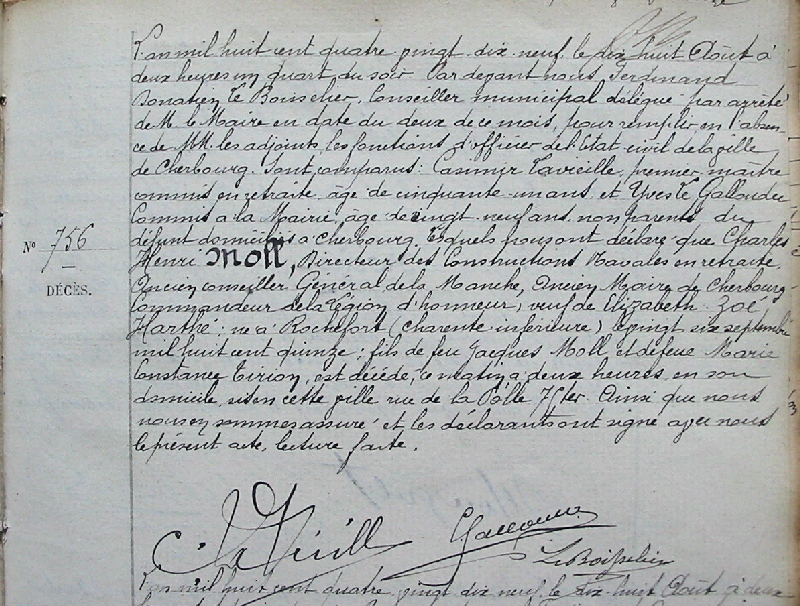 L'an mil huit cent quatre vingt dix neuf, le dix huit Août à
deux heures un quart du soir. Par devant nous, Ferdinand
Bonatien Le Boisselier, Conseiller municipal délégué par arrêté
de M. le Maire en date du deux de ce mois, pour remplir en l'absen-
ce de MM. les adjoints, les fonctions d'officier de l'Etat civil de la ville
de Cherbourg. Sont comparus: Casimir Lavieille, premier maître
commis en retraite, âgé de cinquante un ans et Yves Le Gallouder
Commis à la Mairie, âgé de vingt neuf ans, non parents du
défunt domiciliés à Cherbourg, lesquels nous ont déclaré que Charles
Henri Moll, Directeur des Constructions Navales en retraite
Ancien conseiller Général de la Manche, Ancien Maire de Cherbourg
Commandeur de la Légion d'honneur, veuf de Elizabeth Zoé
Harthe; né à Rochefort (Charente inférieure) le vingt six septembre
mil huit cent quinze; fils de feu Jacques Moll, et de feue Marie
Constance Tirion, est décédé, ce matin à deux heures en son
domicile, sis en cette ville rue de la Polle 75 ter. Ainsi que nous
nous en sommes assuré et les déclarants ont signé avec nous
le présent acte, lecture faite.
No 756
DÉCÈS.
Gallouder
Le Boisselier
L'an mil huit cent quatre vingt dix neuf, le dix huit Août à deux